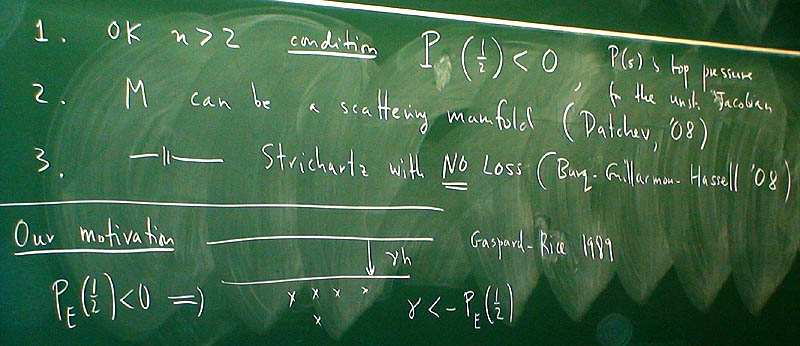 1. OK n > 2 condition P(1/2) < 0, P(s) is top pressure
for the unst. Jacobian
2. M can be a scattering manifold (Datchev, '08)
3. —||— Strichartz with NO Loss (Burq-Guillarmou-Hassell '08)
Our motivation γh Gaspard-Rice 1989
P_E(1/2) < 0 => x x x x γ < -P_E(1/2)
x